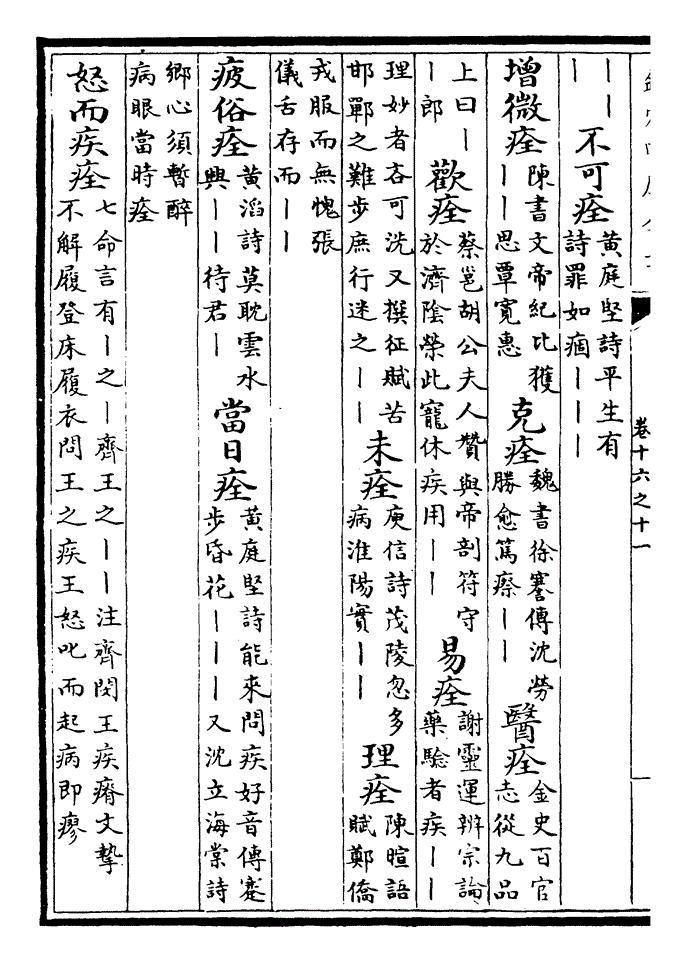 卷十六之十一
丨丨
丨
不可痊
黃庭堅詩平生有
詩罪如痼丨丨丨
增微痊
陳書文帝紀比獲
丨丨思覃寬惠
克痊
魏書徐謇傳沈勞
勝愈篤瘵丨丨
醫痊
金史百官
志從九品
上曰丨
丨郎
歡痊
蔡邕胡公夫人贊與帝剖符守
於濟陰榮此寵休疾用丨丨
易痊
謝靈運辨宗論
藥驗者疾丨丨
理妙者吝可洗又撰征賦苦
邯鄲之難步庶行迷之丨丨
未痊
庾信詩茂陵忽多
病淮陽實丨丨
理痊
陳暄語
賦鄭僑
戎服而無愧張
儀舌存而丨丨
疲俗痊
黃滔詩莫耽雲水
興丨丨待君丨
當日痊
黃庭堅詩能來問疾好音傳蹇
步昏花丨丨丨又沈立海棠詩
鄉心須暫醉
病眼當時痊
怒而疾痊
七命言有丨之丨齊王之丨丨注齊閔王疾瘠文摯
不解履登床履衣問王之疾王怒叱而起病即瘳